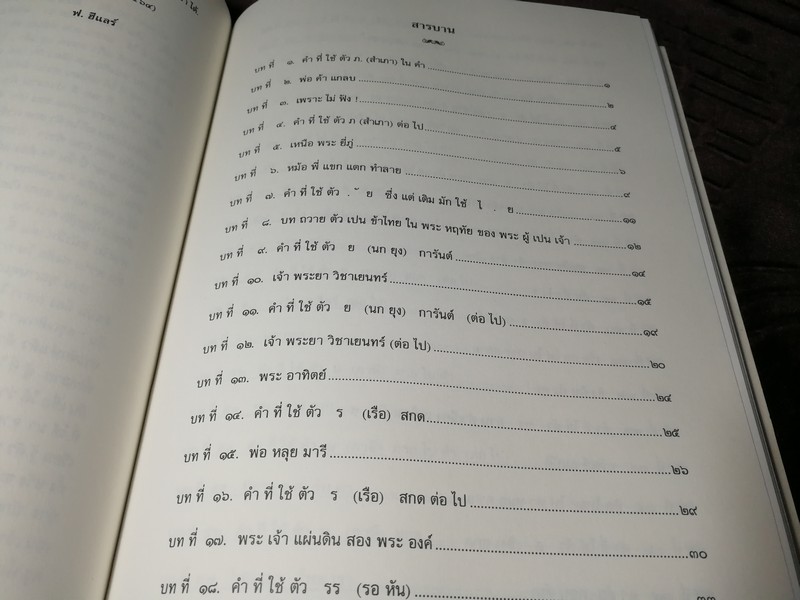 ฟ. ฮีแลร์
สารบาน
บท ที่ ๑. คำ ที่ ใช้ ตัว ภ. (สำเภา) ใน คำ ๑
บท ที่ ๒. พ่อ ค้า แกลบ ๒
บท ที่ ๓. เพราะ ไม่ ฟัง ! ๔
บท ที่ ๔. คำ ที่ ใช้ ตัว ภ (สำเภา) ต่อ ไป ๕
บท ที่ ๕. เหนือ พระ ยี่ภู่ ๖
บท ที่ ๖. หม้อ พี่ แขก แตก ทำลาย ๙
บท ที่ ๗. คำ ที่ ใช้ ตัว . ั ย ซึ่ง แต่ เดิม มัก ใช้ ไ . ย ๑๑
บท ที่ ๘. บท ถวาย ตัว เปน ข้าไทย ใน พระ หฤทัย ของ พระ ผู้ เปน เจ้า ๑๒
บท ที่ ๙. คำ ที่ ใช้ ตัว ย (นก ยุง) การันต์ ๑๔
บท ที่ ๑๐. เจ้า พระยา วิชาเยนทร์ ๑๕
บท ที่ ๑๑. คำ ที่ ใช้ ตัว ย (นก ยุง) การันต์ (ต่อ ไป) ๑๙
บท ที่ ๑๒. เจ้า พระยา วิชาเยนทร์ (ต่อ ไป) ๒๐
บท ที่ ๑๓. พระ อาทิตย์ ๒๔
บท ที่ ๑๔. คำ ที่ ใช้ ตัว ร (เรือ) สกด ๒๕
บท ที่ ๑๕. พ่อ หลุย มารี ๒๖
บท ที่ ๑๖. คำ ที่ ใช้ ตัว ร (เรือ) สกด ต่อ ไป ๒๙
บท ที่ ๑๗. พระ เจ้า แผ่นดิน สอง พระ องค์ ๓๐
บท ที่ ๑๘. คำ ที่ ใช้ ตัว รร (รอ หัน)